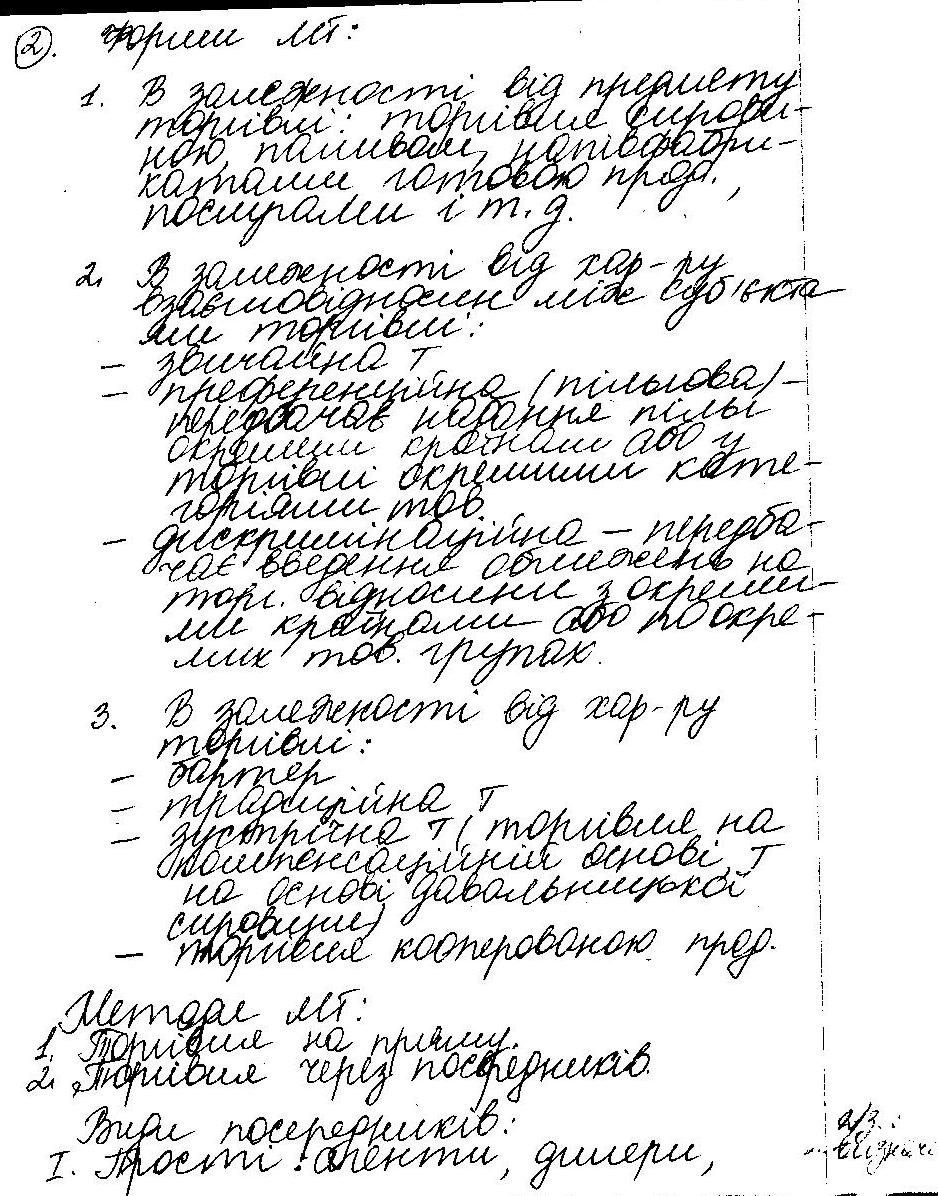 2. Форми МТ:
1. В залежності від предмету
торгівлі: торгівля сирови-
ною, паливом, напівфабри-
катами готовою прод.,
послугами і т.д.
2. В залежності від хар-ру
взаємовідносин між суб'єкта
ми торгівлі:
– звичайна Т
– преференційна (пільгова) –
передбачає надання пільг
окремим країнам або у
торгівлі окремими кате-
горіями тов.
– дискримінаційна – передба-
чає введення обмежень на
торг. відносини з окреми-
ми країнами або по окре-
мих тов. групах.
3. В залежності від хар-ру
торгівлі:
– бартер
– традиційна Т
– зустрічна Т (торгівля на
компенсаційній основі, Т
на основі давальницької
сировини)
– торгівля кооперованою прод.
Методи МТ:
1. Торгівля на пряму.
2. Торгівля через посередників.
Види посередників:
I. Прості: агенти, дилери,